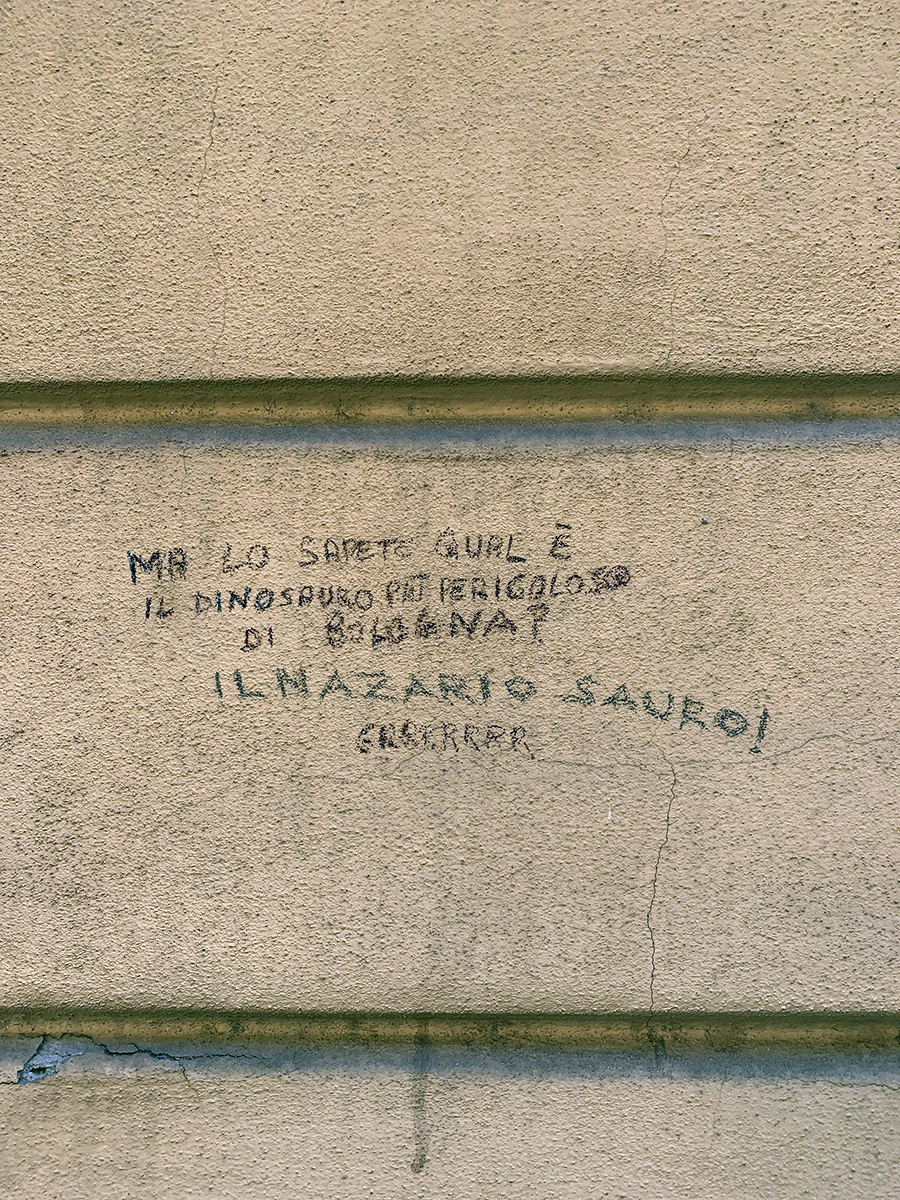 MA LO SAPETE QUAL È
IL DINOSAURO PIÙ PERIGOLOSO
DI BOLOGNA?
IL NAZARIO SAURO!